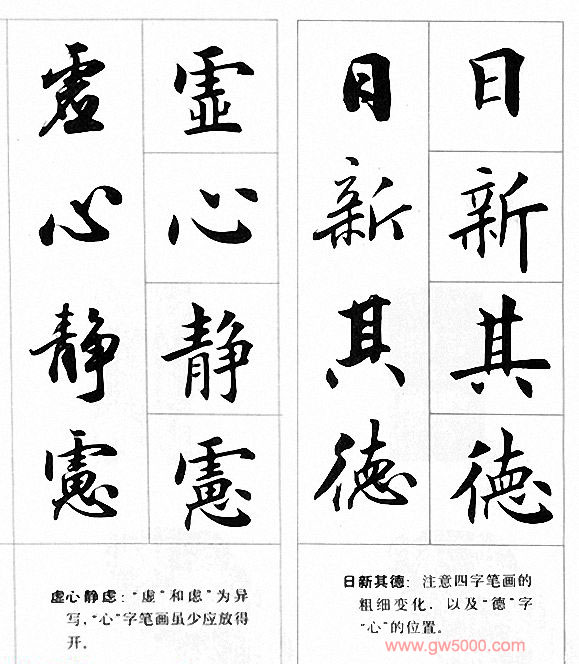 日新其德
日新其德
日新其德：注意四字笔画的
粗细变化，以及“德”字
“心”的位置。
虚心静虑
虚心静虑
虚心静虑：“虚”和虑”为异
写，“心”字笔画虽少应放得
开。
www.gw5000.com